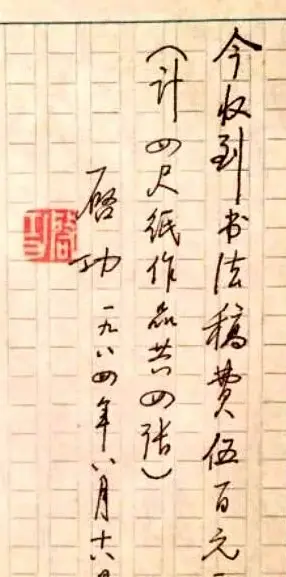 今收到书法稿费伍百元
（计四尺纸作品共四张）
启功 一九八四年八月十六
启功